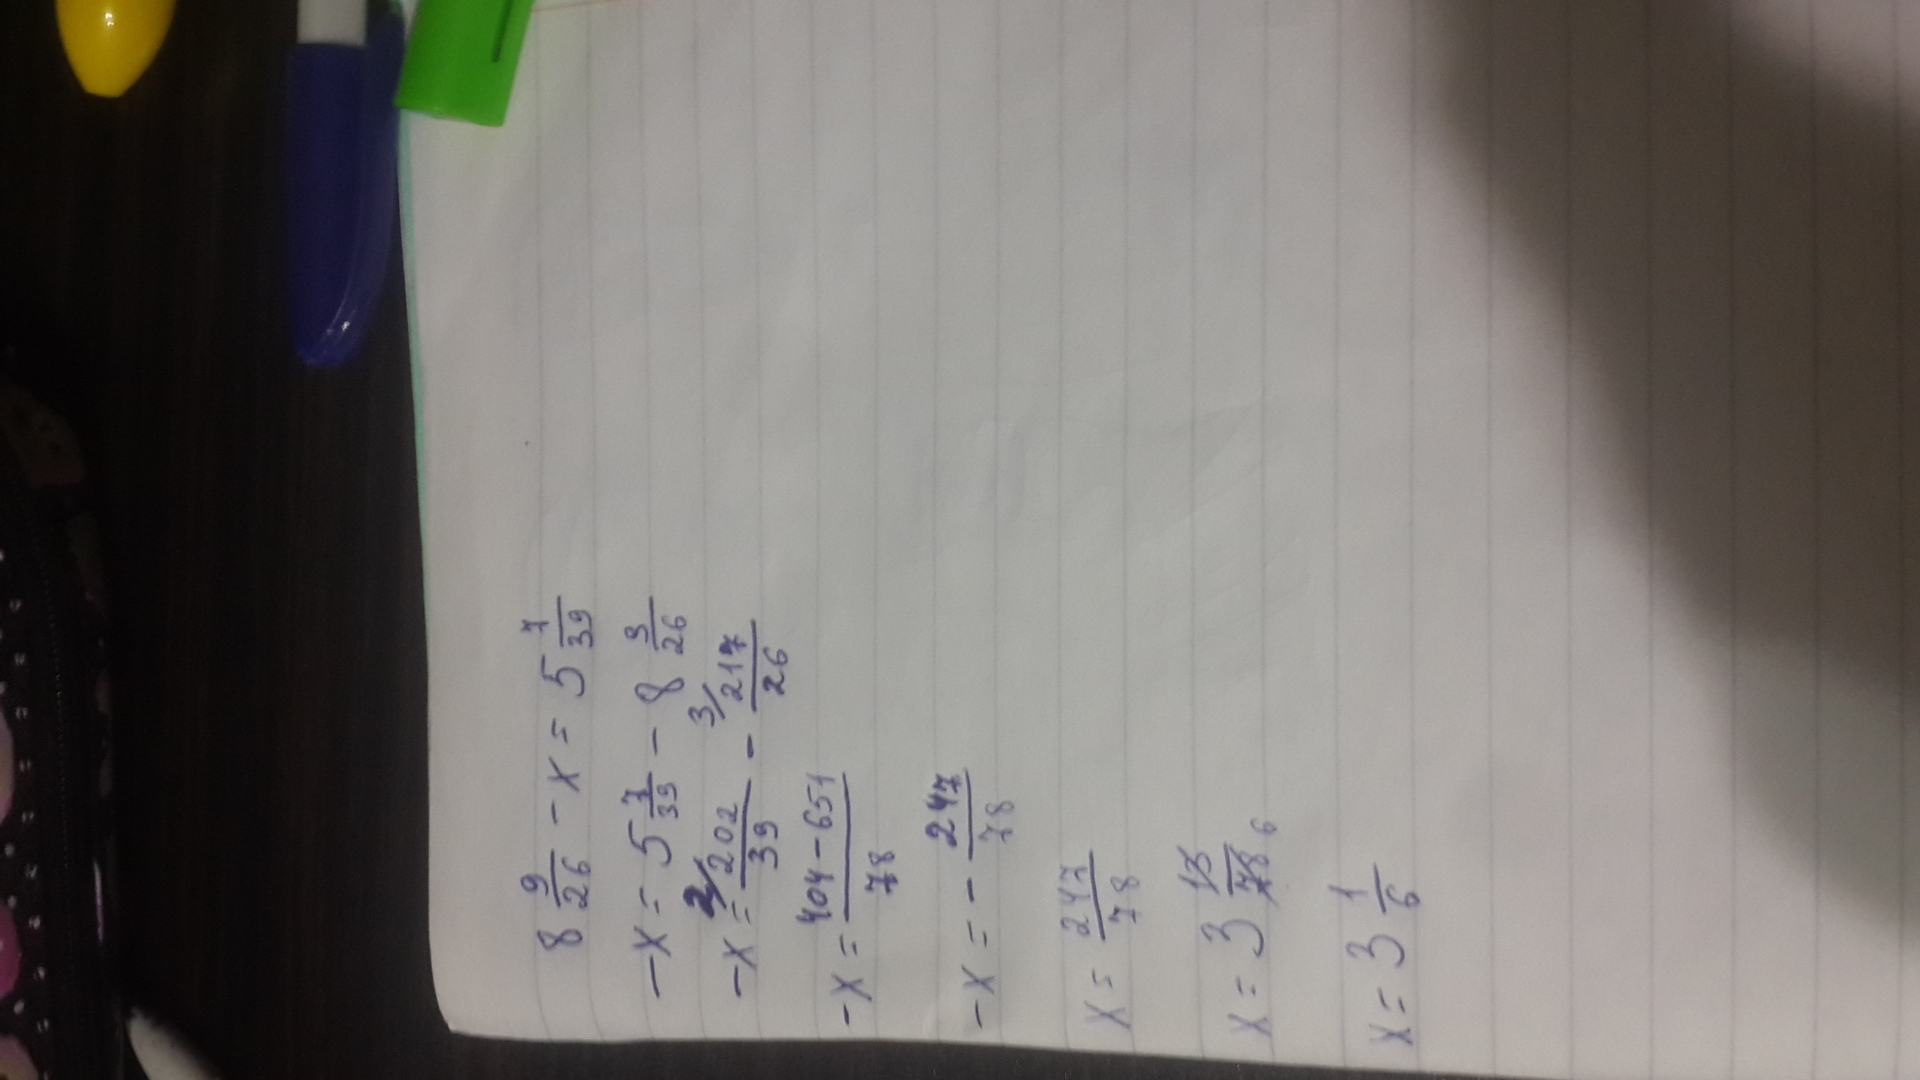 8 9/26 - x = 5 7/39
-x = 5 7/39 - 8 9/26
-x = 2/ 202/39 - 3/ 217/26
-x = 404-651/78
-x = - 247/78
x = 247/78
x = 3 13/78 6
x = 3 1/6